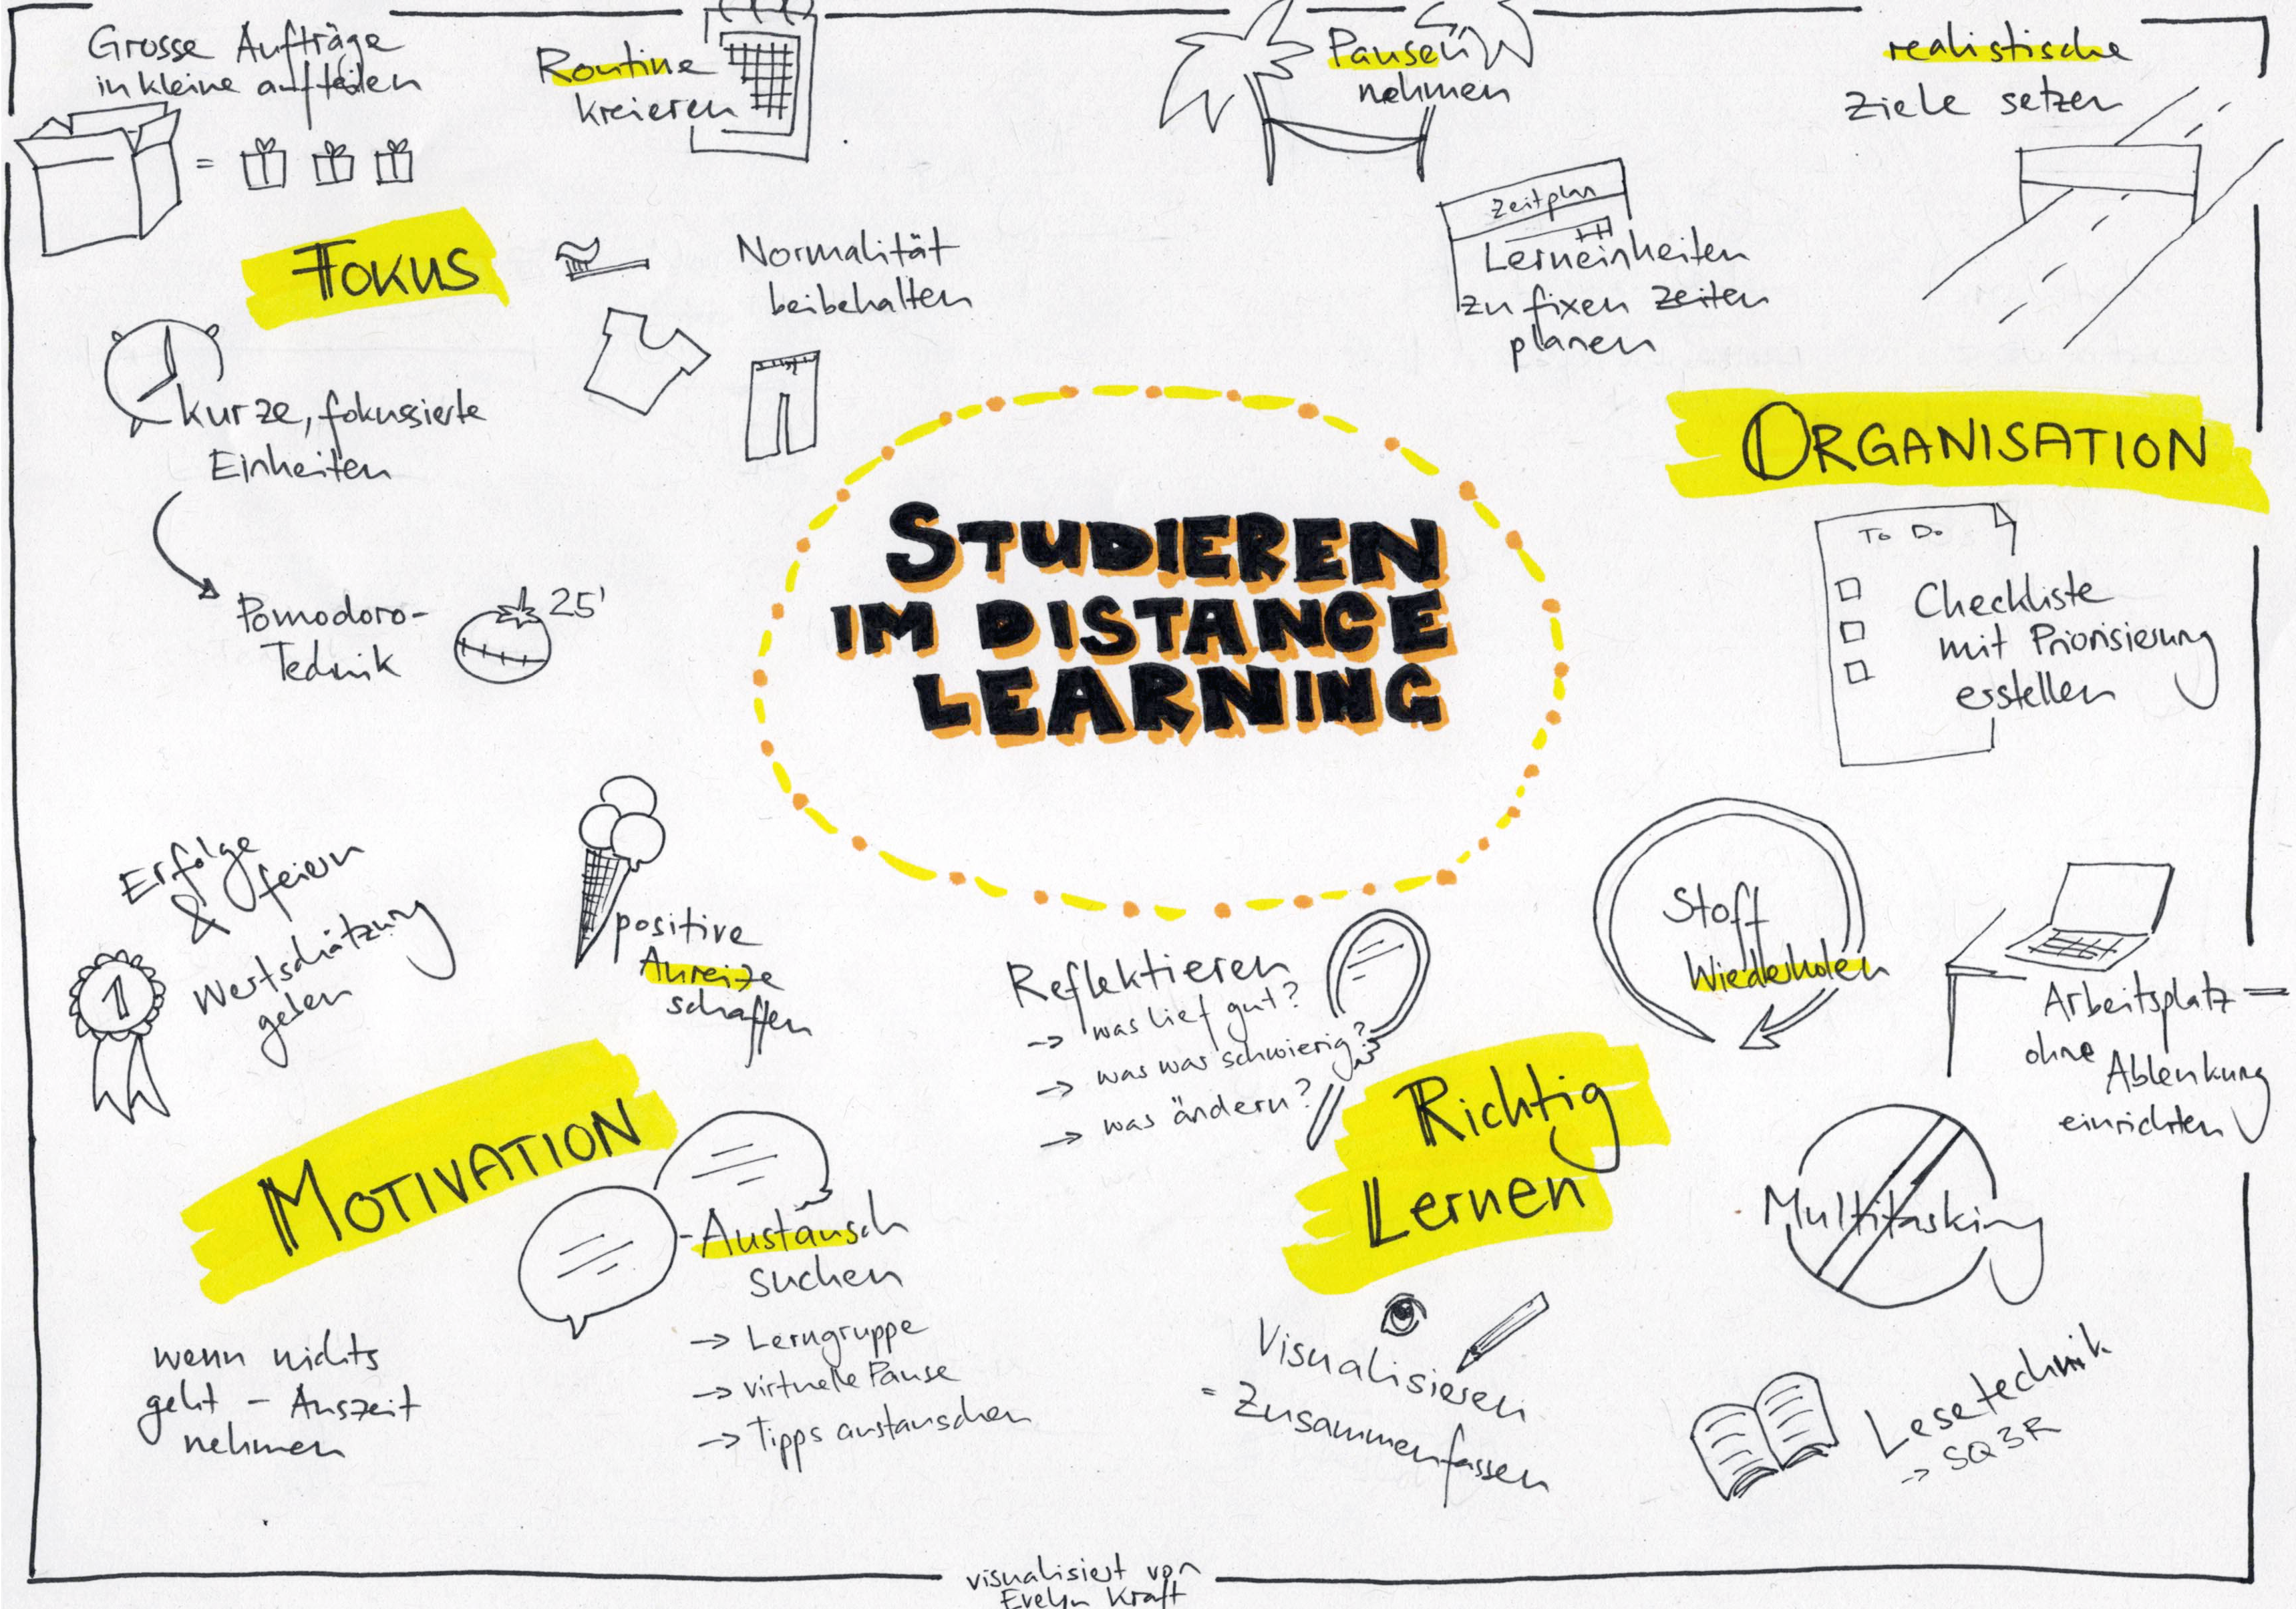 Grosse Aufträge
in kleine aufteilen
=
Routine
kreieren
Pausen
nehmen
realistische
Ziele setzen
Zeitplan
Lerneinheiten
zu fixen Zeiten
planen
FOKUS
Normalität
beibehalten
kurze, fokussierte
Einheiten
Pomodoro-
Technik
25'
ORGANISATION
To Do
Checkliste
mit Priorisierung
erstellen
STUDIEREN
IM DISTANCE
LEARNING
Erfolge
feiern
&
Wertschätzung
geben
1
positive
Anreize
schaffen
MOTIVATION
Austausch
suchen
→ Lerngruppe
→ virtuelle Pause
→ Tipps austauschen
wenn nichts
geht - Auszeit
nehmen
Reflektieren
→ was lief gut?
→ was war schwierig?
→ was ändern?
Richtig
Lernen
Stoff
Wiederholen
Arbeitsplatz
ohne
Ablenkung
einrichten
Multitasking
Visualisieren
= Zusammenfassen
Lesetechnik
→ SQ3R
visualisiert von
Evelyn Kraft